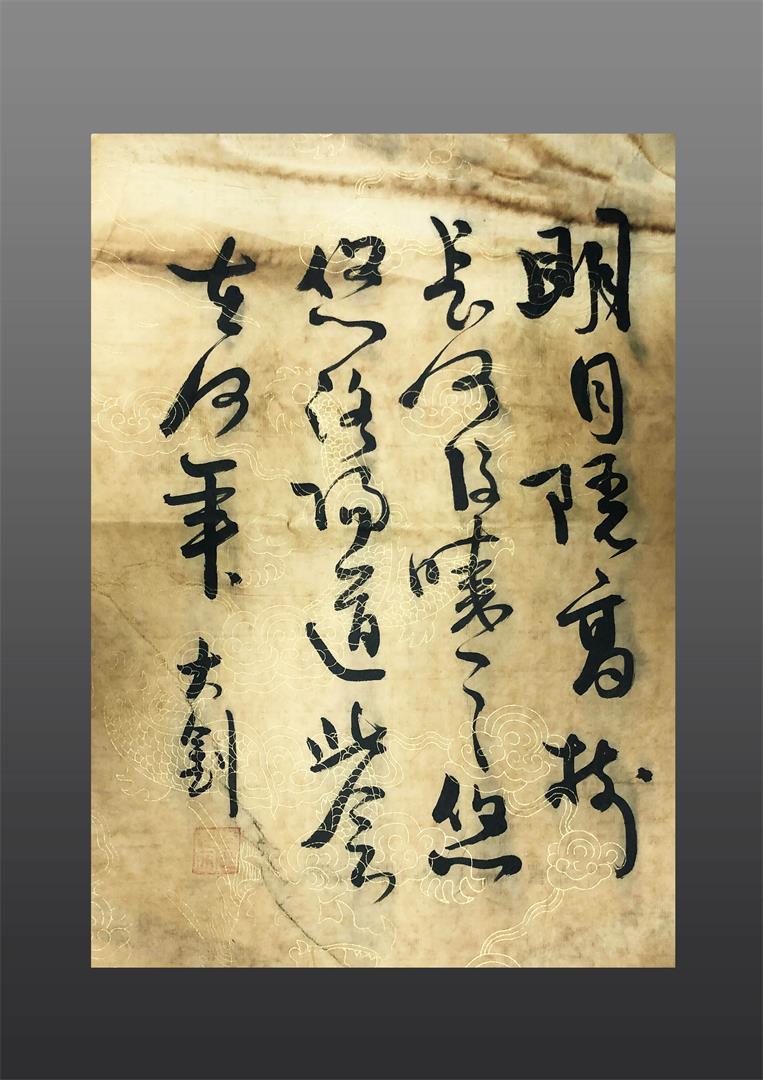 明月隱高樹
長河没曉天悠
悠洛陽道此會
在何年
大